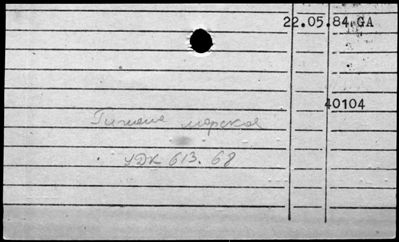 22.05.84.GA
40104
Гигиена морская
УДК 613.68